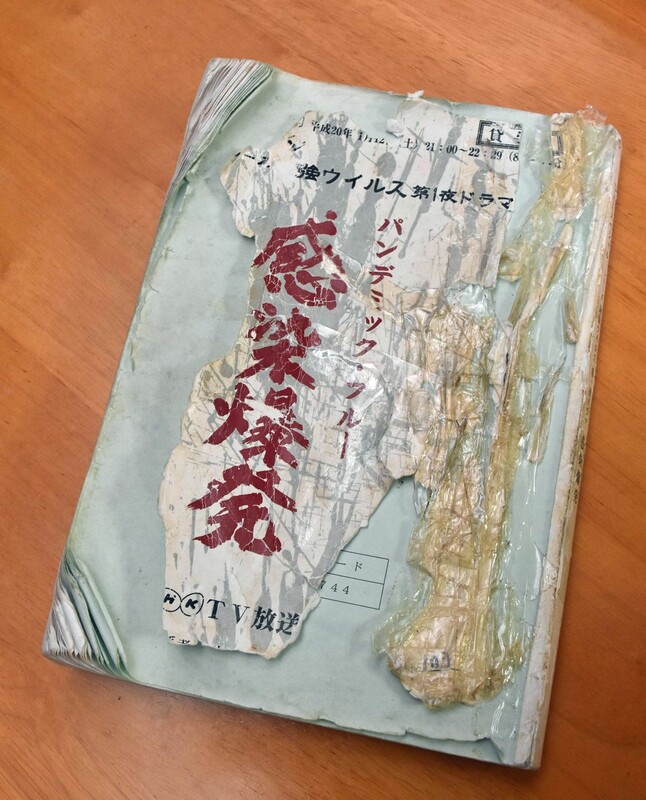 平成20年1月12 (土) 21:00~22:29 (8
強ウイルス 第1夜ドラマ
パンデミック・フルー
感染爆発
ード
744
NHK TV放送